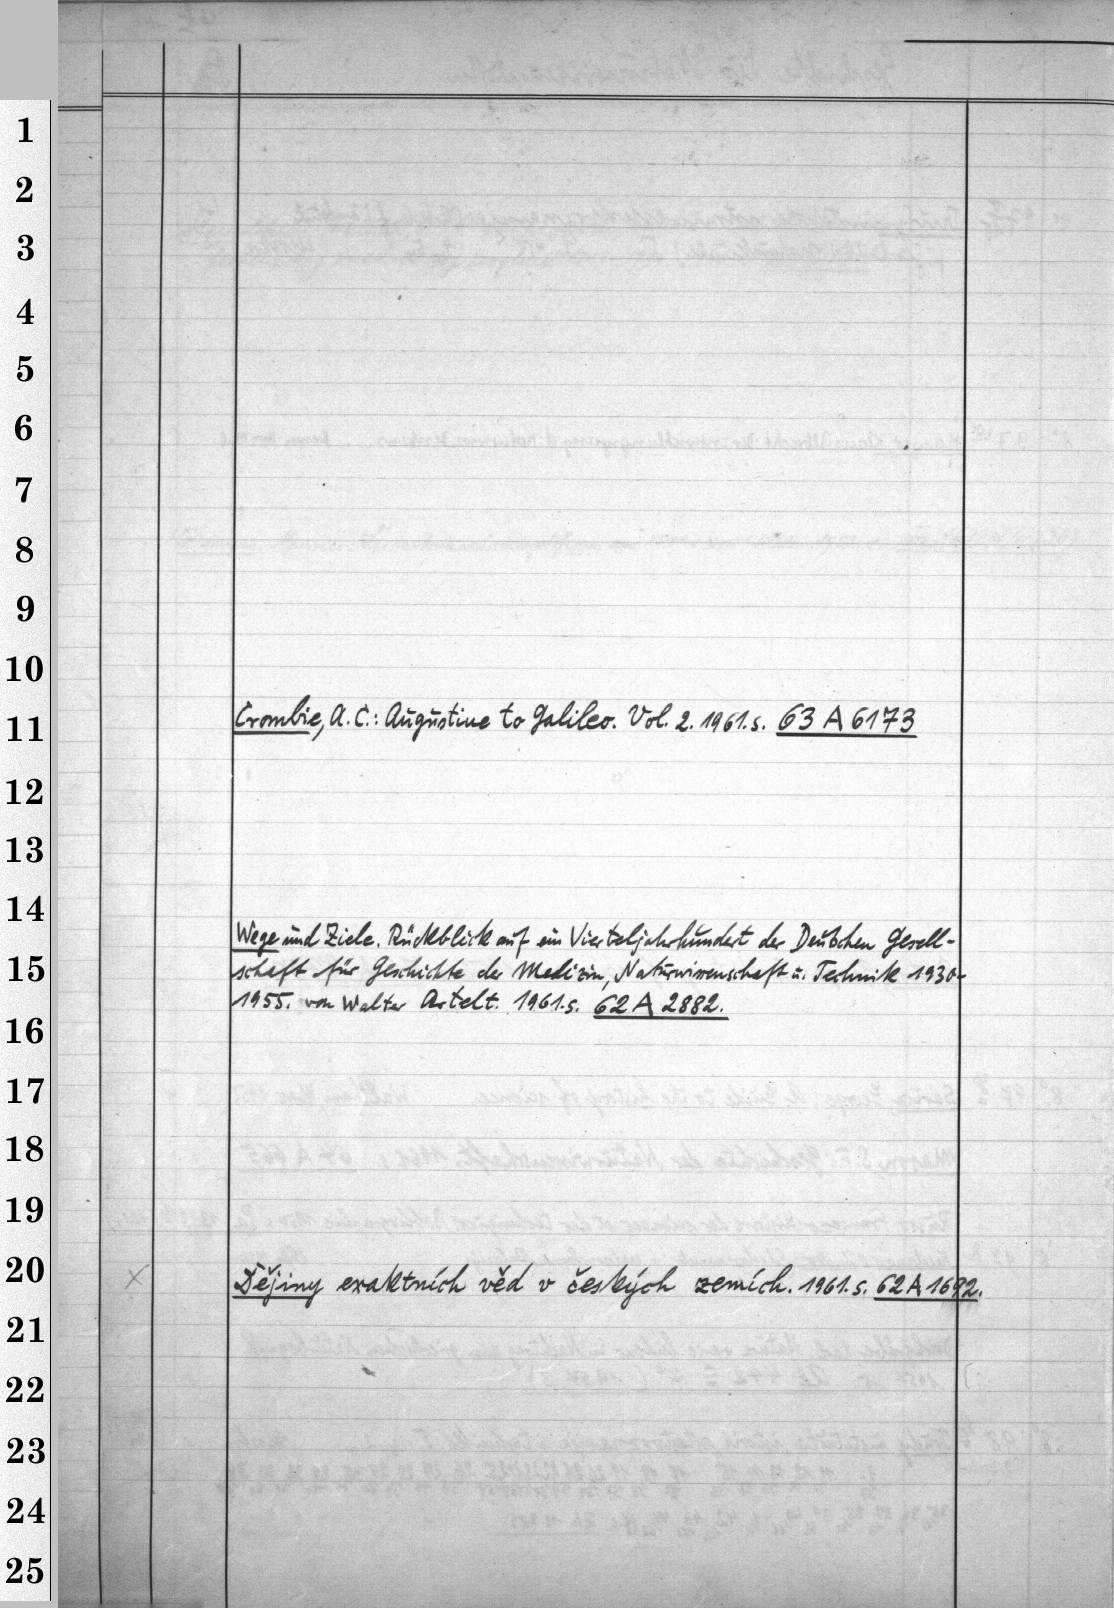 1
2
3
4
5
6
7
8
9
10
11 Crombie, A.C.: Augustine to Galileo. Vol. 2. 1961.s. 63 A 6173
12
13
14
Wege und Ziele. Rückblick auf ein Vierteljahrhundert der Deutschen Gesell-
15 schaft für Geschichte der Medizin, Naturwissenschaft u. Technik 1930-
1955. von Walter Artelt. 1961.s. 62 A 2882.
16
17
18
19
20 × Dějiny exaktních věd v českých zemích. 1961.s. 62 A 1692.
21
22
23
24
25